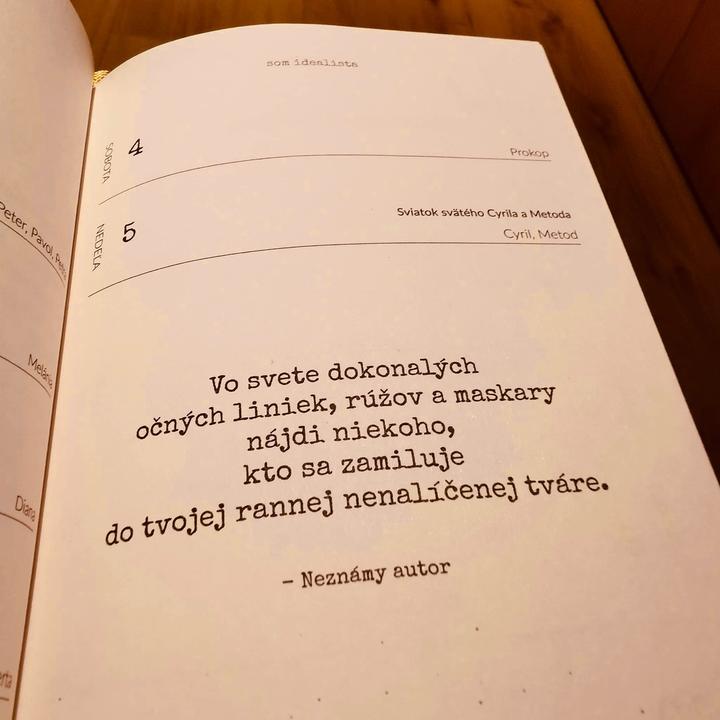 som idealista
SOBOTA
4
Prokop
NEDEĽA
5
Sviatok svätého Cyrila a Metoda
Cyril, Metod
Vo svete dokonalých
očných liniek, rúžov a maskary
nájdi niekoho,
kto sa zamiluje
do tvojej rannej nenalíčenej tváre.
– Neznámy autor
Peter, Pavol,
Melánia
Diana